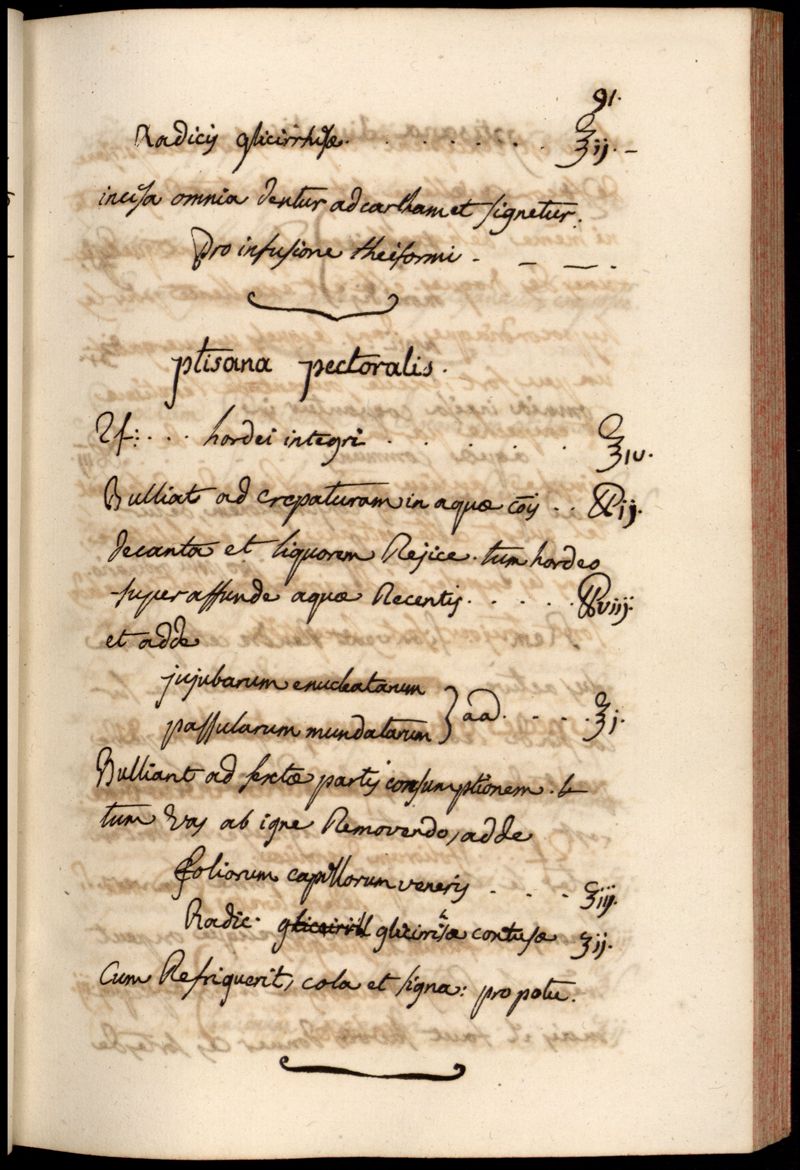 91.
Radicis glicirrhisæ . . . . . . . ℥ij. –
incisa omnia dentur ad cartham et signetur.
Pro infusione theiformi . – — .
ptisana pectoralis.
Rf: . . . hordei integri . . . . . ℥iv.
Bulliat ad crepaturam in aquæ cōis . . ℔ij.
decanta et liquorem Rejice. tum hordeo
super affunde aquæ Recentis . . . . . ℔viij.
et adde
jujubarum enucleatarum
passularum mundatarum } aad. . . . ℥j.
Bulliant ad sextæ partis consumptionem.
tum vas ab igne Removendo, adde
foliorum capillorum veneris . . . . ʒiij.
Radic. glicirisæ contusæ ʒij.
Cum Refriguerit, cola et signa: pro potu.